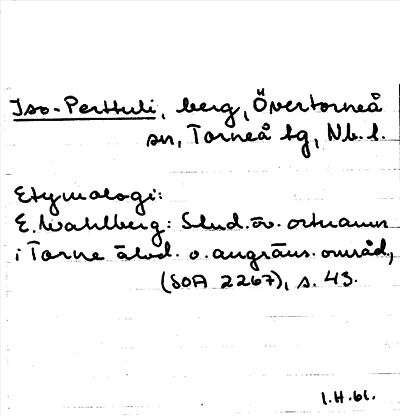 Iso-Perttuli, berg, Övertorneå
sn, Torneå tg, Nb. l.
Etymologi:
E. Wahlberg: Stud. öv. ortnamn
i Torne älvd. o. angräns. område,
(SOA 2267), s. 43.
I.H. 61.